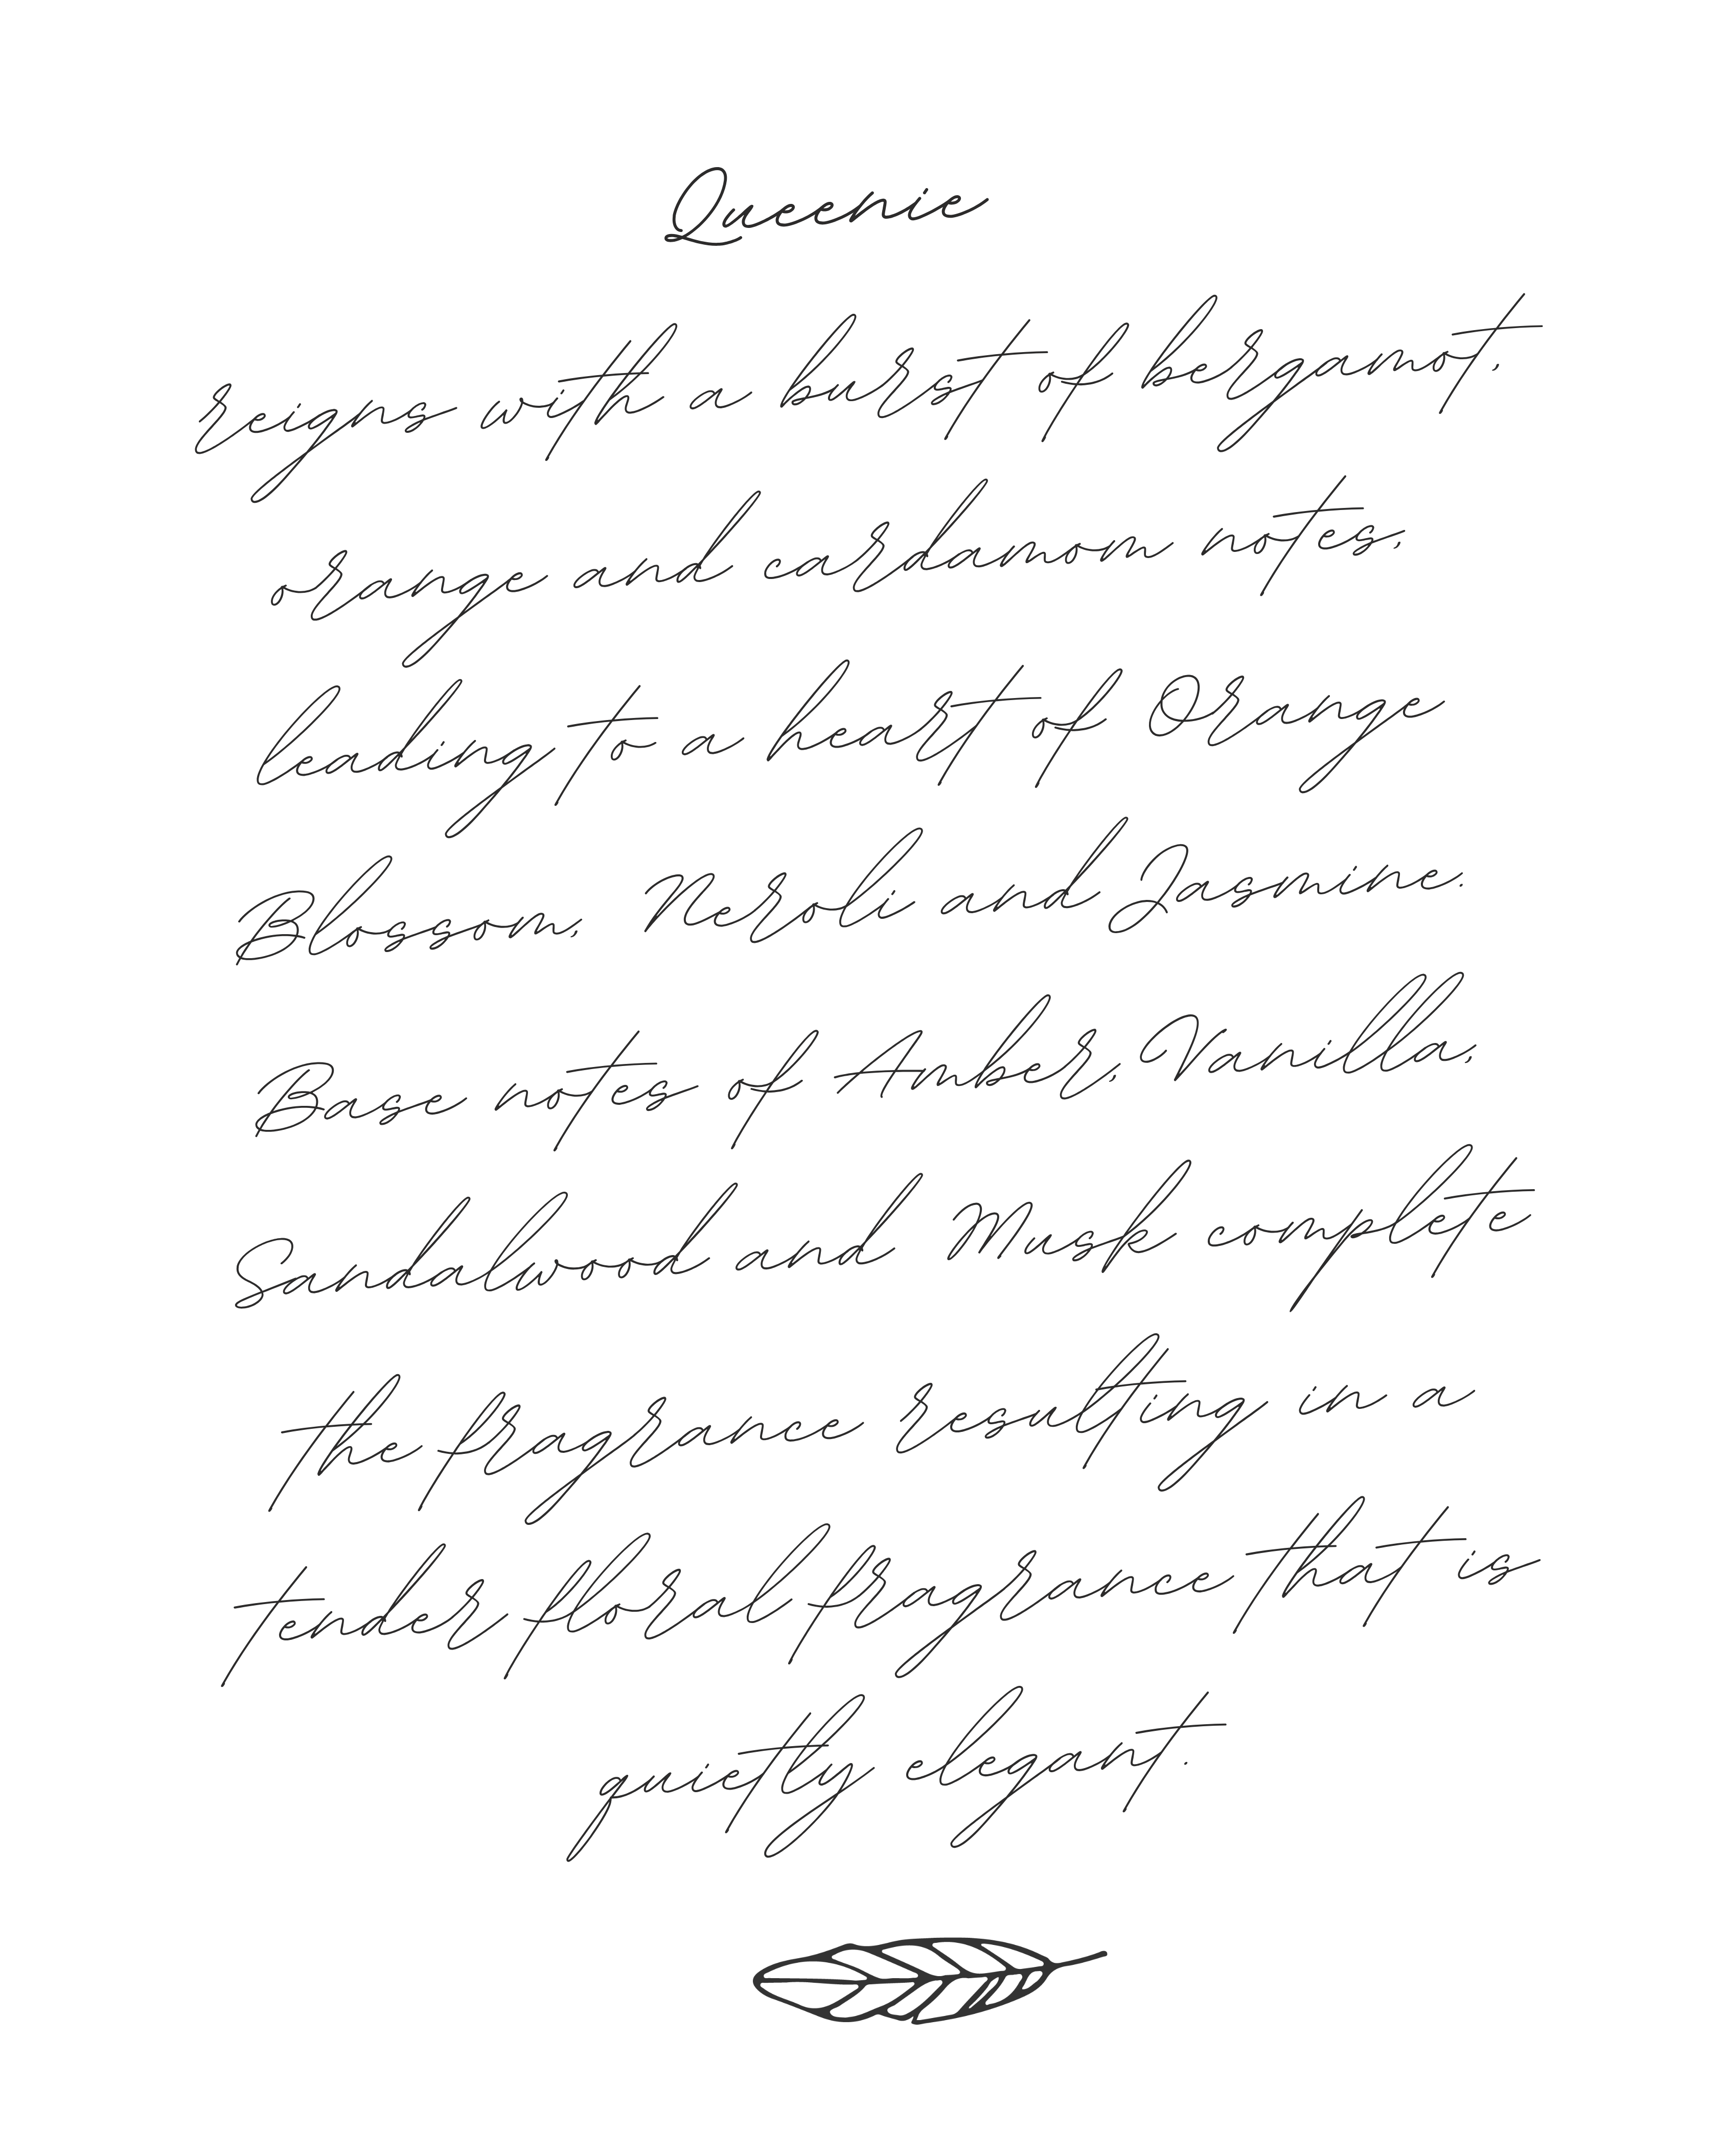 Queenie
reigns with a burst of bergamot,
orange and cardamom notes,
leading to a heart of Orange
Blossom, Neroli and Jasmine.
Base notes of Amber, Vanilla,
Sandalwood and Musk complete
the fragrance resulting in a
tender floral fragrance that is
quietly elegant.